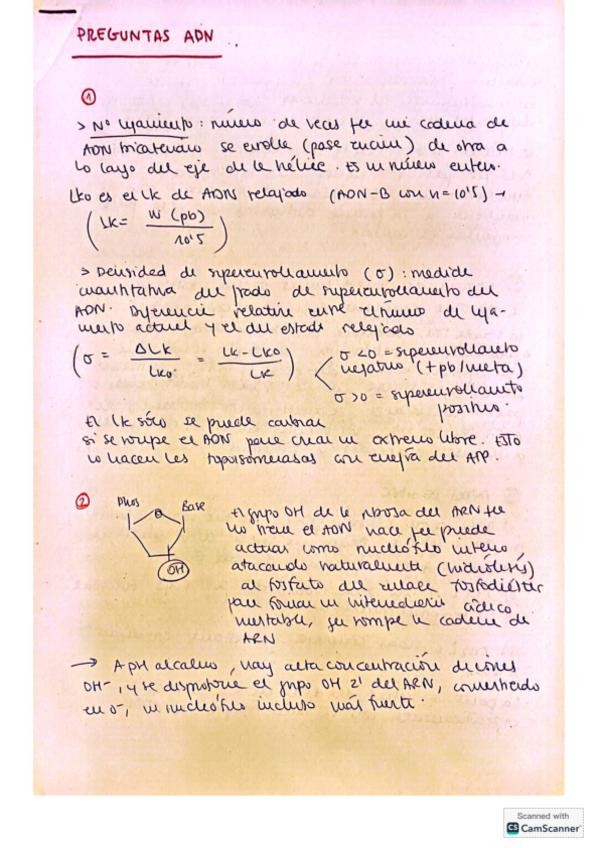 PREGUNTAS ADN
①
> Nº ligamiento: número de veces que una cadena de
ADN bicatenario se enrolla (pasa encima) de otra a
lo largo del eje de la hélice. Es un número entero.
Lk0 es el Lk de ADN relajado (ADN-B con n=10'5) →
(Lk = N (pb) / 10'5)
> Densidad de superenrollamiento (σ): medida
cuantitativa del grado de superenrollamiento del
ADN. Diferencia relativa entre el número de liga-
miento actual y el del estado relajado
(σ = ΔLk / Lk0 = Lk - Lk0 / Lk)
σ<0 = superenrollamiento
negativo (+pb/vuelta)
σ>0 = superenrollamiento
positivo.
El Lk sólo se puede cambiar
si se rompe el ADN para crear un extremo libre. Esto
lo hacen las topoisomerasas con energía del ATP.
②
Phos
Base
O
OH
El grupo OH de la ribosa del ARN que
no tiene el ADN hace que pueda
actuar como nucleófilo interno
atacando naturalmente (hidrólisis)
al fosfato del enlace fosfodiéster
para formar un intermediario cíclico
inestable, que rompe la cadena de
ARN
→ A pH alcalino, hay alta concentración de iones
OH-, y se desprotona el grupo OH 2' del ARN, convirtiendo
en O-, un nucleófilo incluso más fuerte.
Scanned with
CS CamScanner